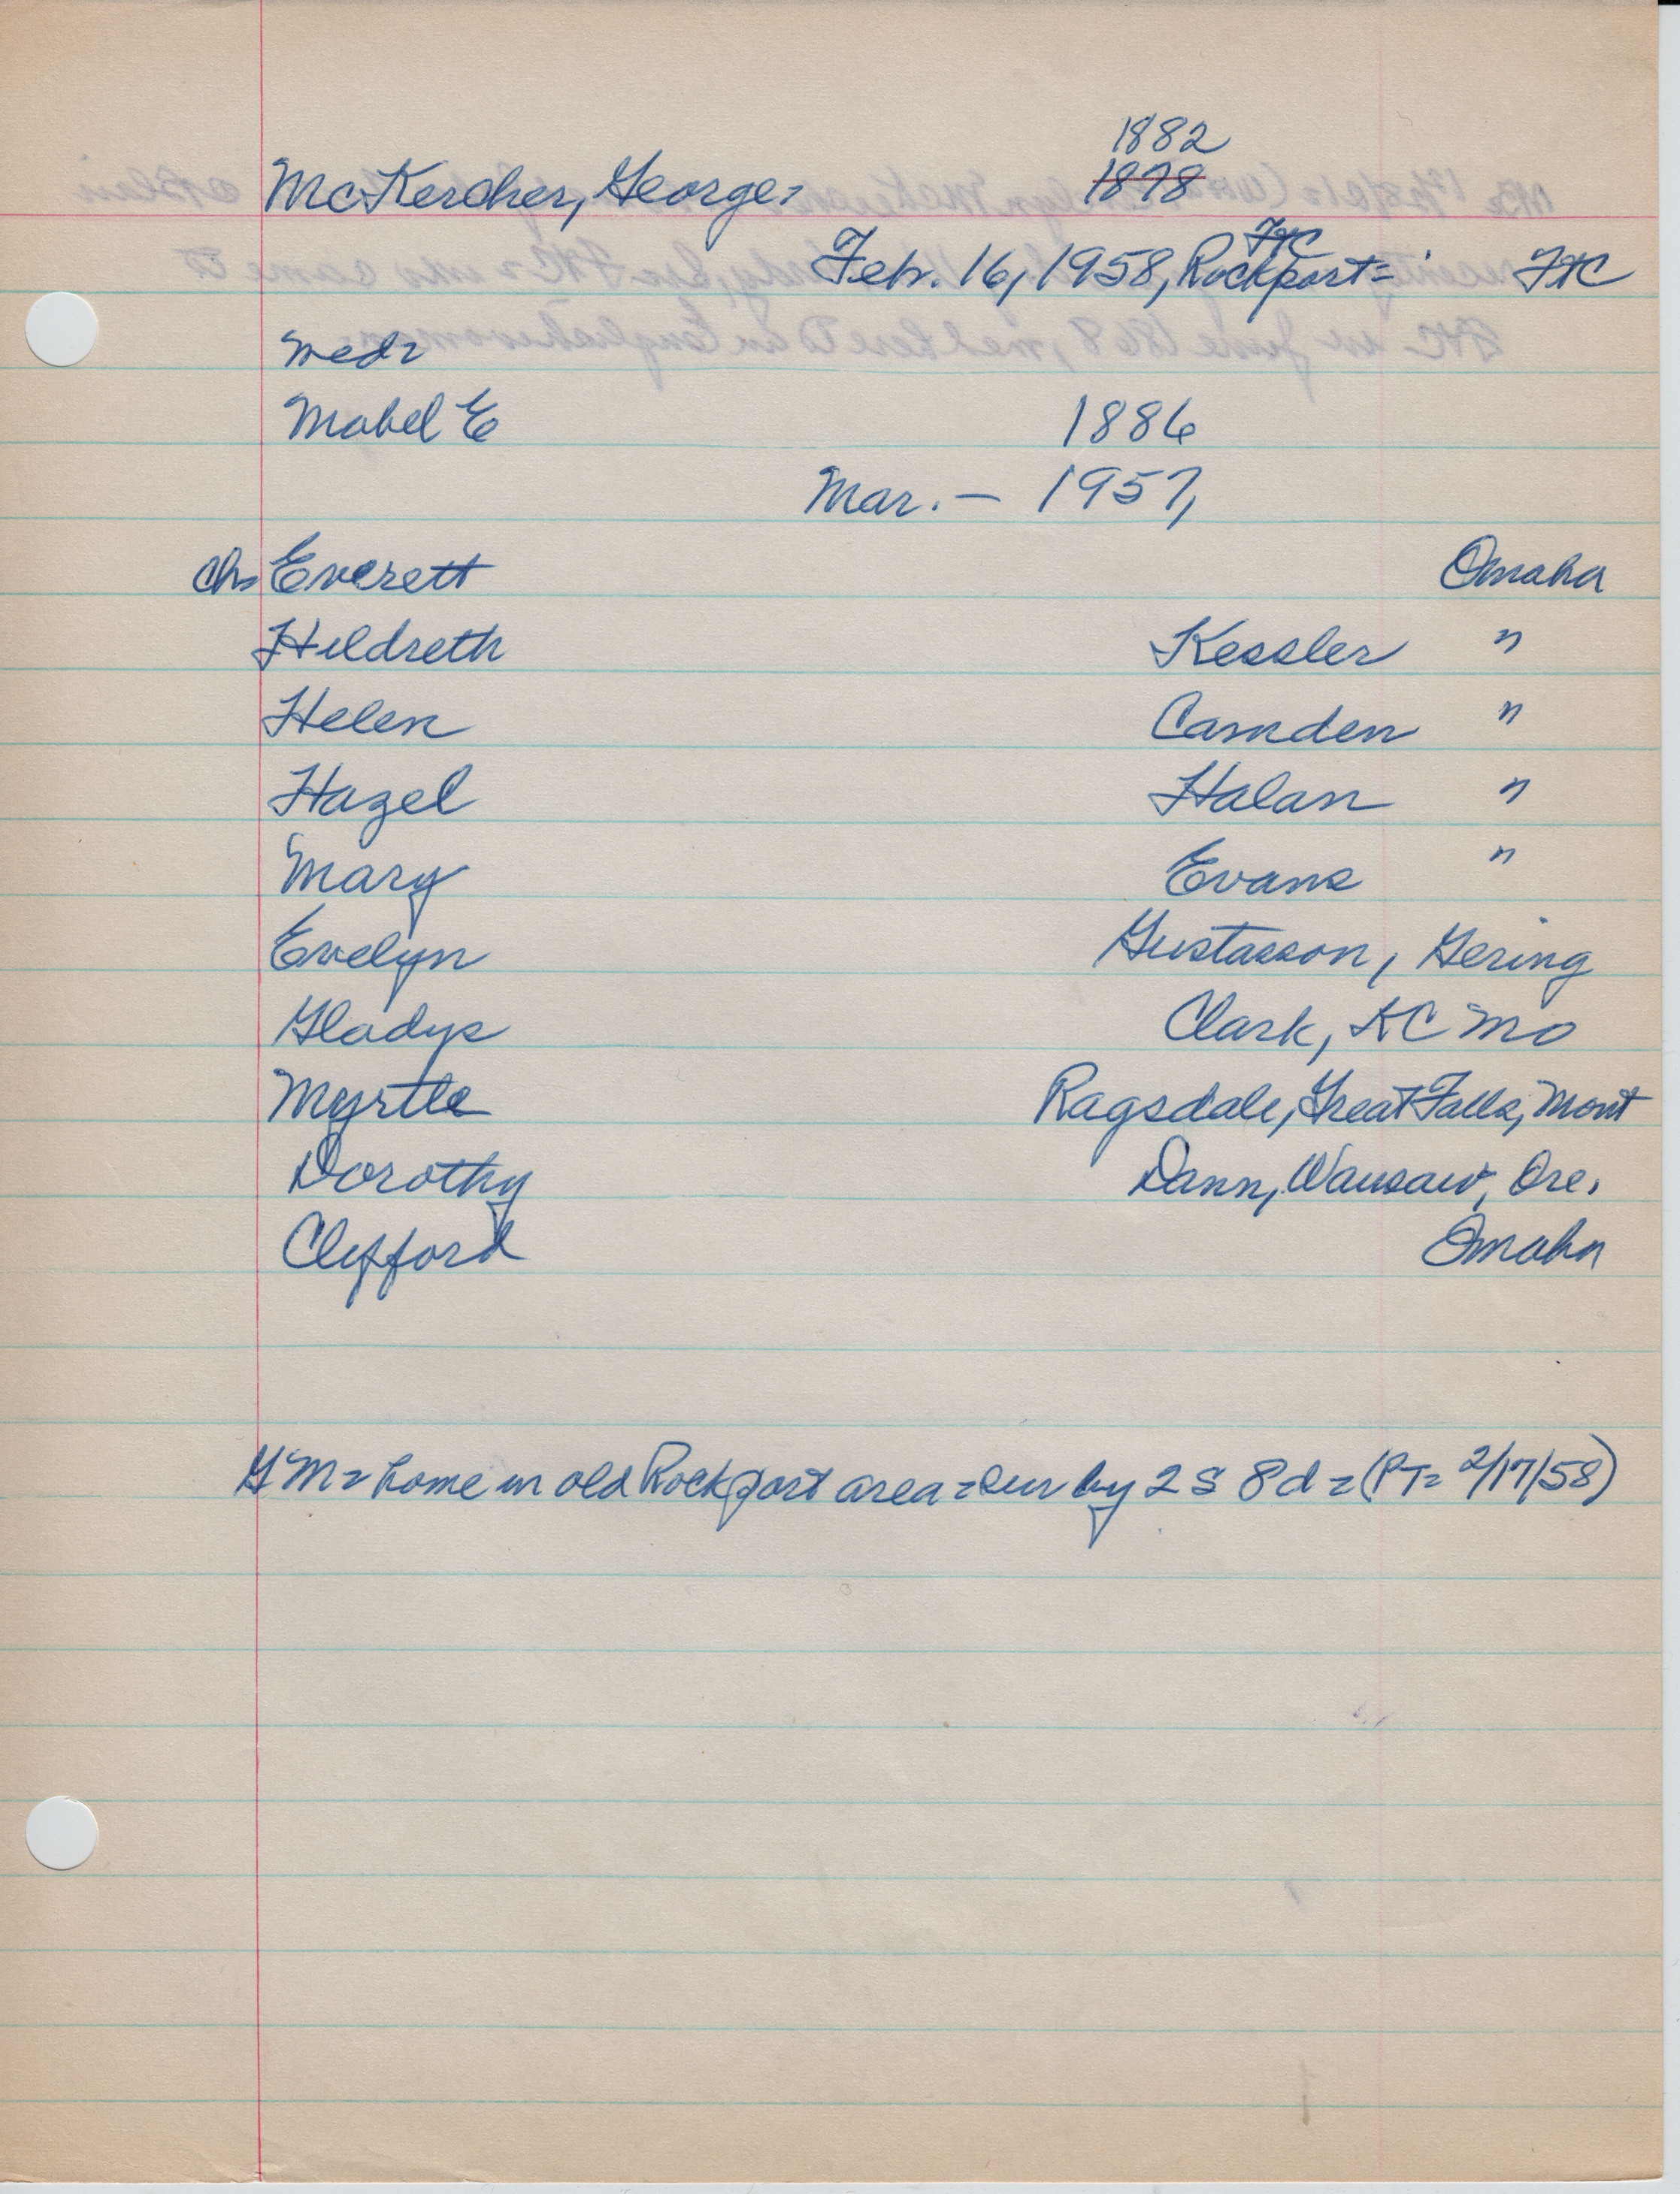 1882
McKercher, George = 1878
FtC
Feb. 16, 1958, Rockport = FtC
wed =
Mabel E 1886
Mar. — 1957,
Ch = Everett Omaha
Hildreth Kessler "
Helen Camden "
Hazel Halan "
Mary Evans "
Evelyn Gustasson, Gering
Gladys Clark, KC Mo
Myrtle Ragsdale, Great Falls, Mont
Dorothy Dann, Wausaw, Ore.
Clifford Omaha
GM = home in old Rockport area = sur by 2 s 8 d = (PT = 2/17/58)